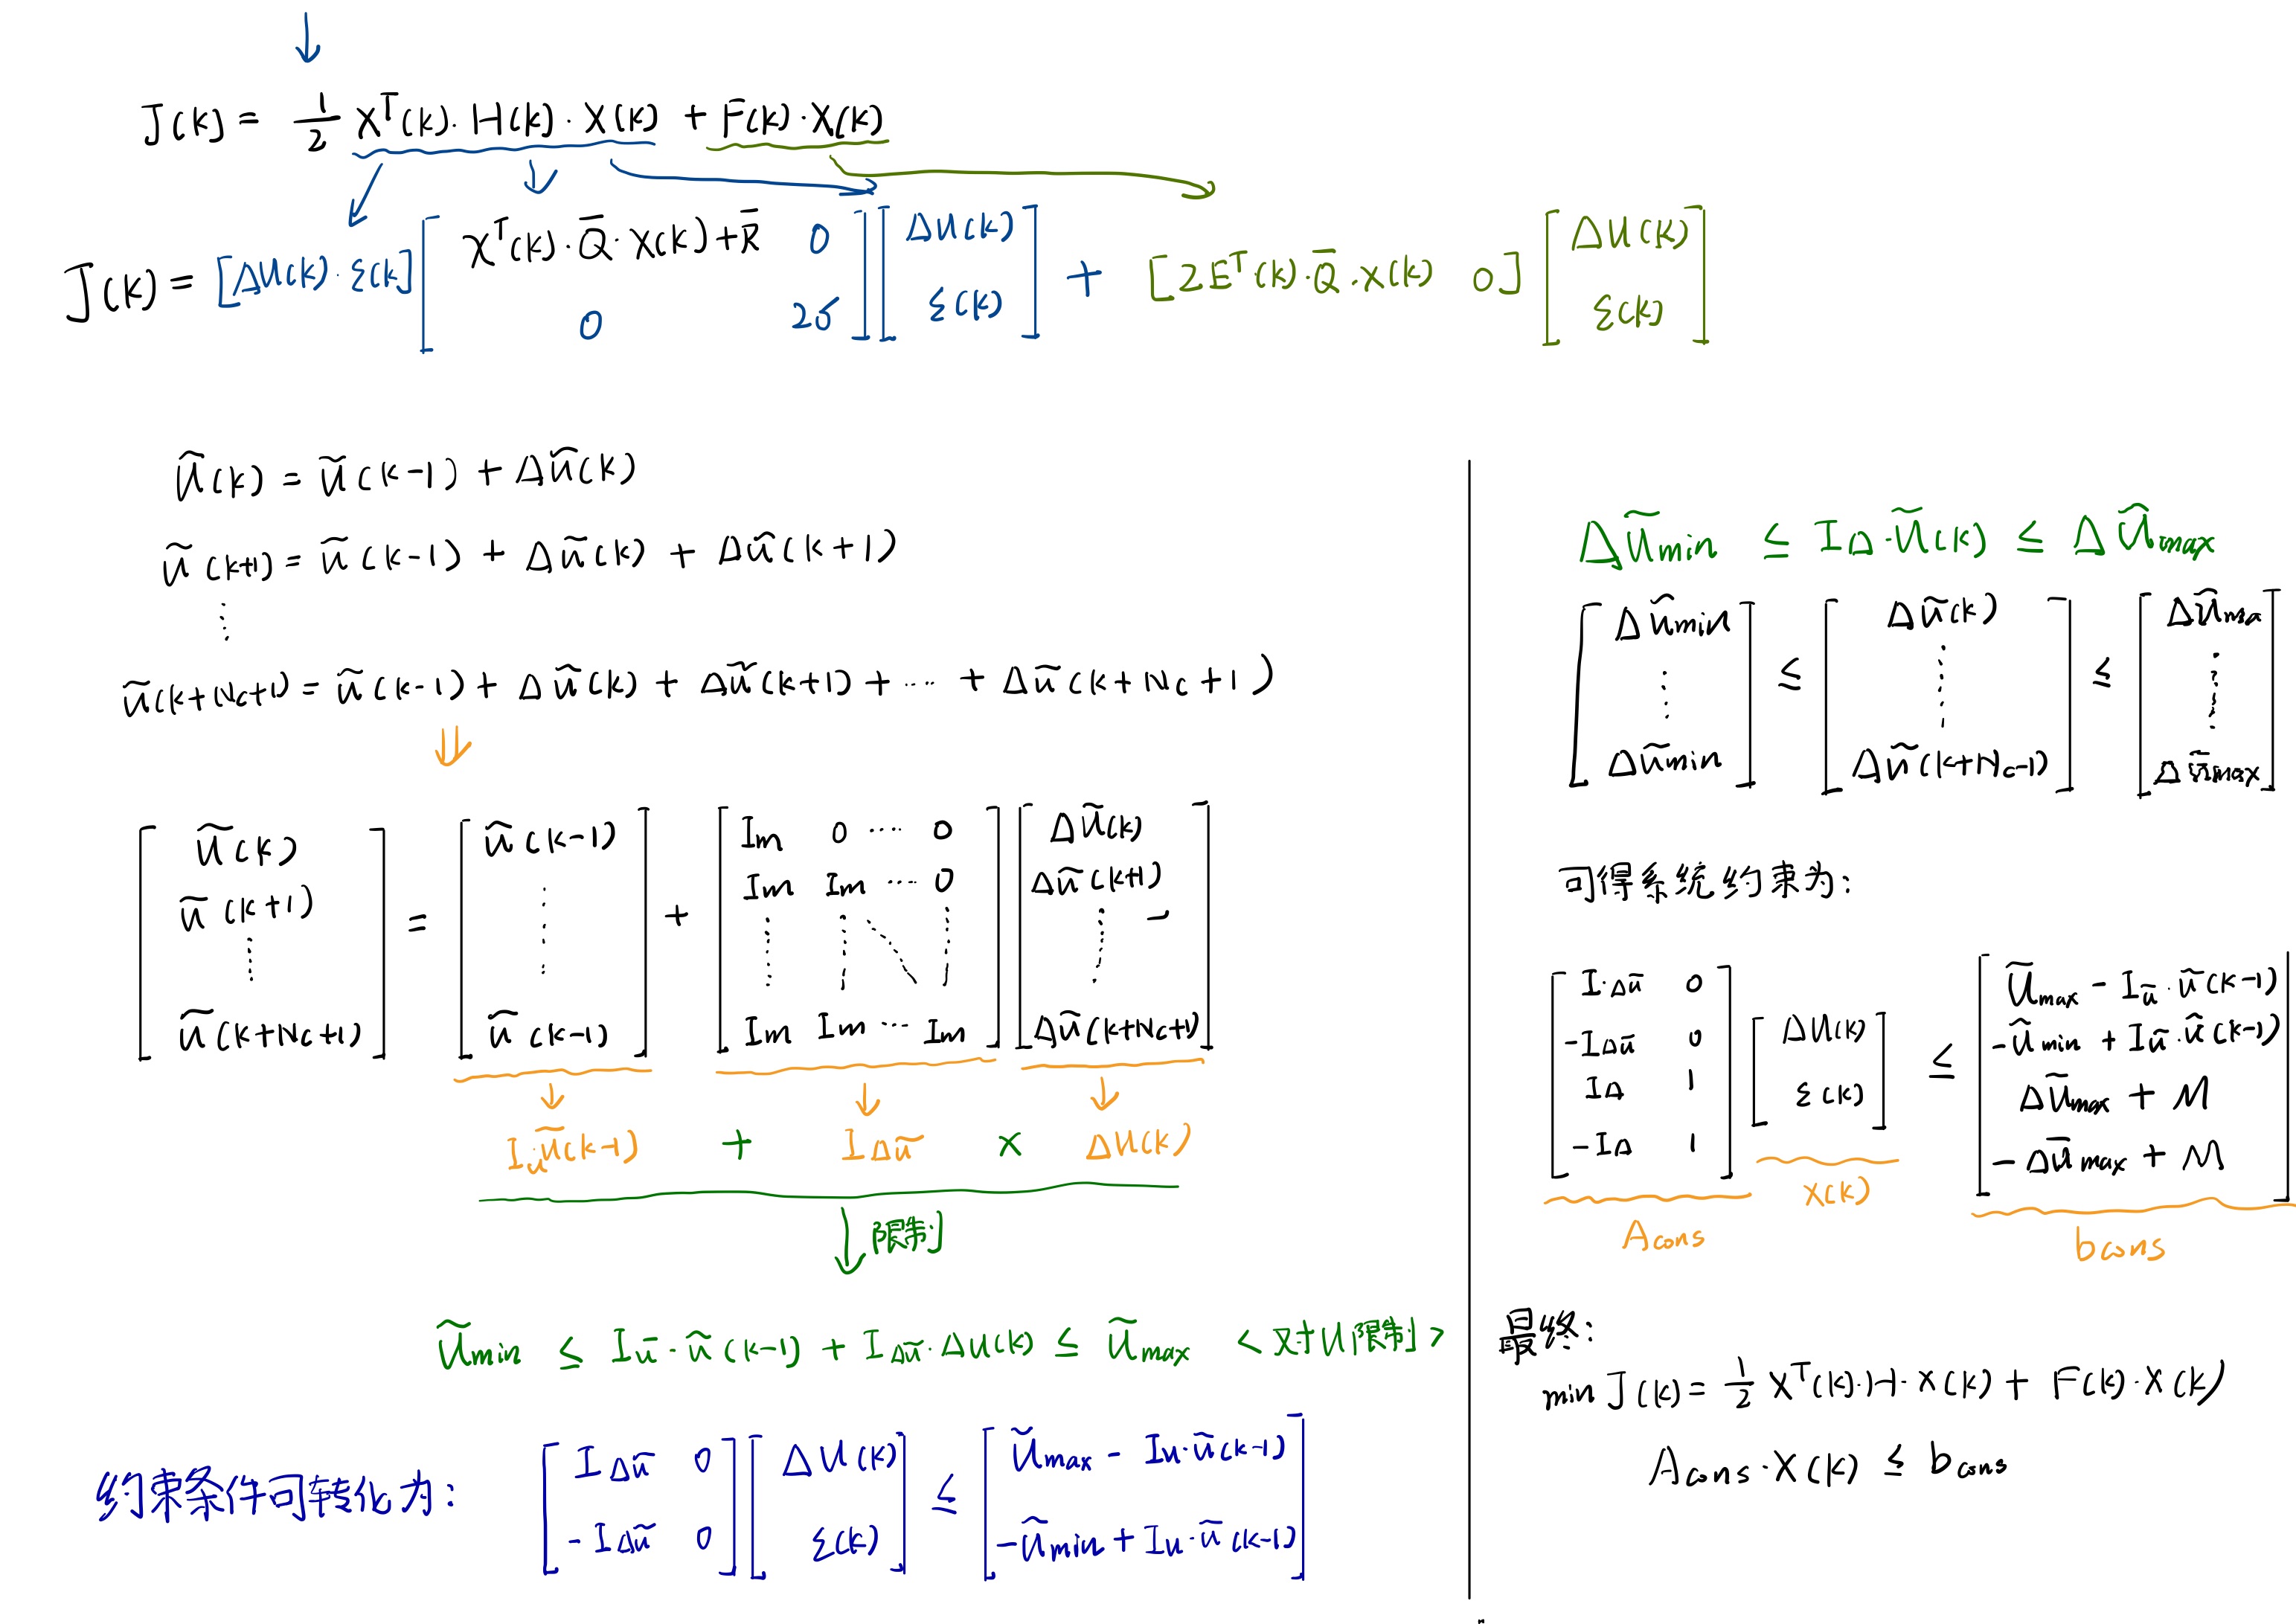 J(k) = 1/2 X^T(k)·H(k)·X(k) + F(k)·X(k)
J(k) = [ΔU(k)·ε(k] [X^T(k)·Q̄·X(k)+R̄ 0; 0 2δ] [ΔU(k); ε(k)] + [2E^T(k)·Q̄·X(k) 0] [ΔU(k); ε(k)]
ũ(k) = ũ(k-1) + Δũ(k)
ũ(k+1) = ũ(k-1) + Δũ(k) + Δũ(k+1)
⋮
ũ(k+Nc+1) = ũ(k-1) + Δũ(k) + Δũ(k+1) + ··· + Δũ(k+Nc+1)
⇓
[ũ(k); ũ(k+1); ⋮; ũ(k+Nc+1)] = [ũ(k-1); ⋮; ũ(k-1)] + [Im 0 ··· 0; Im Im ··· 0; ⋮ ⋮ ⋱ ⋮; Im Im ··· Im] [Δũ(k); Δũ(k+1); ⋮; Δũ(k+Nc+1)]
I_ũ·ũ(k-1) + I_Δũ × ΔU(k)
↓ 限制
Ũmin ≤ I_ū·ũ(k-1) + I_Δũ·ΔU(k) ≤ Ũmax <对U限制>
约束条件可转化为: [I_Δũ 0; -I_Δũ 0] [ΔU(k); ε(k)] ≤ [Ũmax - Iu·ũ(k-1); -Ũmin + Iu·ũ(k-1)]
ΔŨmin ≤ I_Δ·Ũ(k) ≤ ΔŨmax
[Δũmin; ⋮; Δũmin] ≤ [Δũ(k); ⋮; Δũ(k+Nc-1)] ≤ [Δũma; ⋮; Δũmax]
可得系统约束为:
[I·Δũ 0; -I_Δũ 0; I_Δ 1; -I_Δ 1] [ΔU(k); ε(k)] ≤ [Ũmax - I_ũ·ũ(k-1); -Ũmin + I_ũ·ũ(k-1); ΔŨmax + M; -ΔŨmax + M]
Acons X(k) bcons
最终:
min J(k) = 1/2 X^T(k)·H·X(k) + F(k)·X(k)
Acons·X(k) ≤ bcons